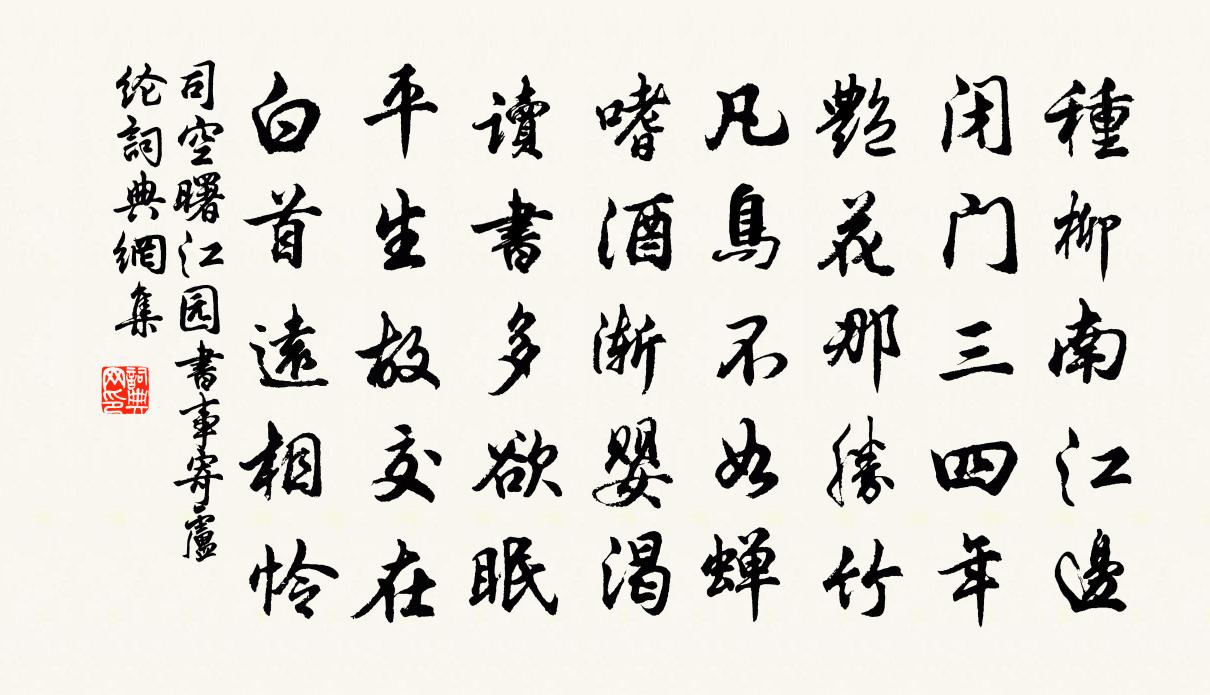 種柳南江邊
闭门三四年
艷花那勝竹
凡鳥不如蝉
嗜酒渐嬰渴
讀書多欲眠
平生故交在
白首遠相怜
司空曙江园書事寄盧
纶詞典網集
詞典网印